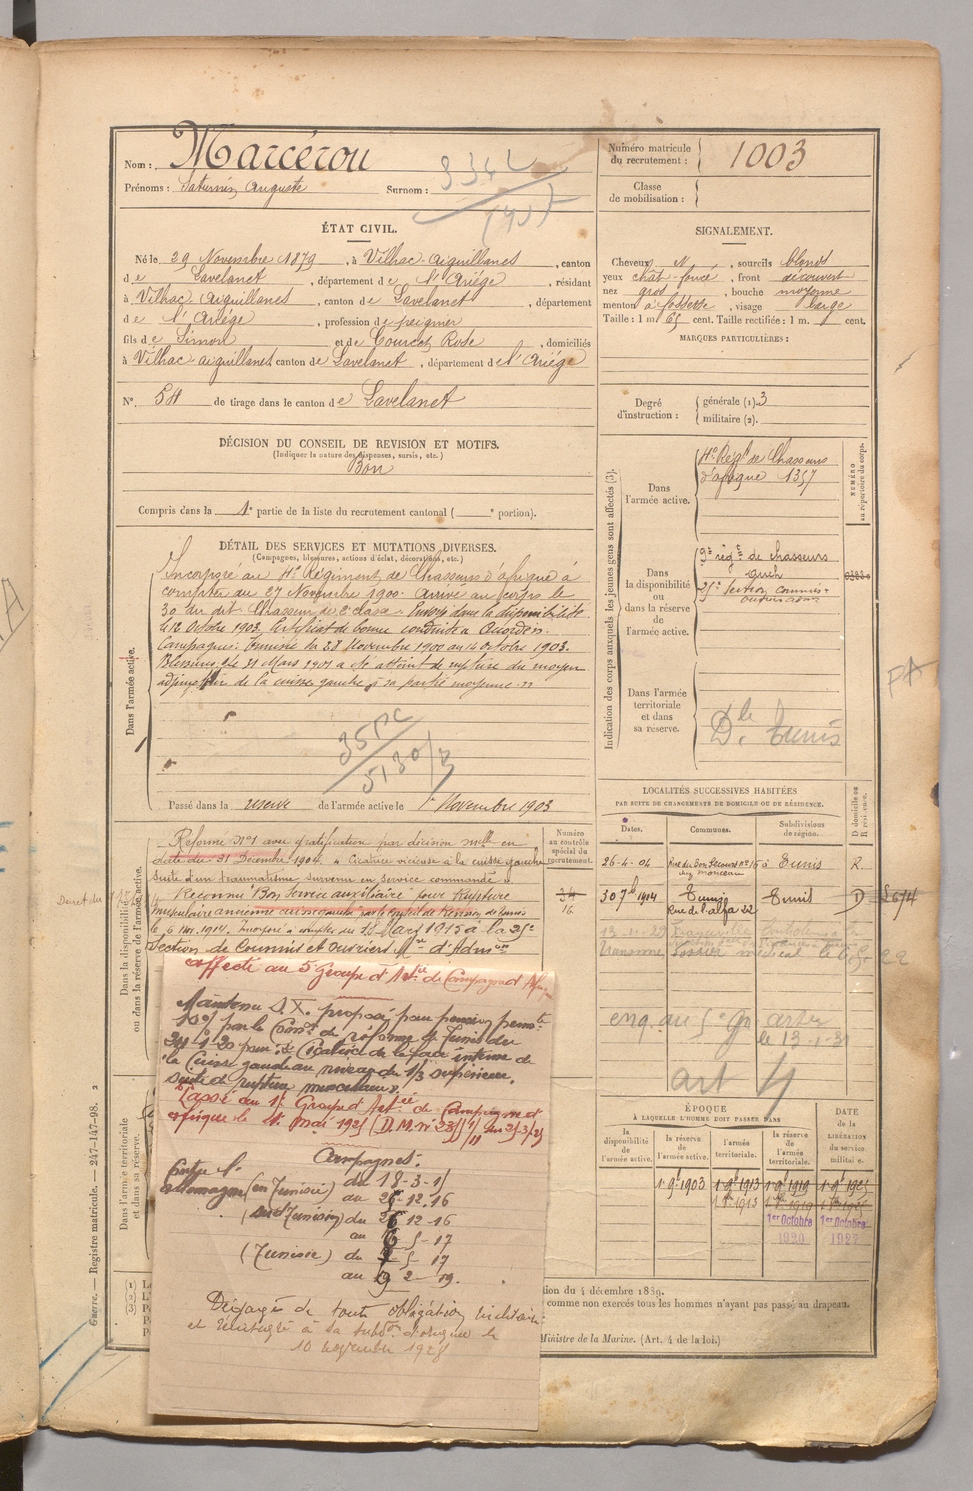 Nom : Marcérou
Prénoms : Saturnin Auguste Surnom :
Numéro matricule du recrutement : 1003
Classe de mobilisation :
ÉTAT CIVIL.
Né le 29 Novembre 1879, à Vilhac-Aiguillanes, canton
de Lavelanet, département de l'Ariége, résidant
à Vilhac-Aiguillanes, canton de Lavelanet, département
de l'Ariége, profession de
fils de Simon et de Courdet Rose, domiciliés
à Vilhac-aiguillanes canton de Lavelanet, département de l'Ariége
N°. 54 de tirage dans le canton de Lavelanet
SIGNALEMENT.
Cheveux N, sourcils blonds
yeux chât-foncé, front découvert
nez gros, bouche moyenne
menton à fossette, visage large
Taille : 1 m. 65 cent. Taille rectifiée : 1 m. cent.
MARQUES PARTICULIÈRES :
Degré d'instruction : générale (1). 3
militaire (2).
DÉCISION DU CONSEIL DE REVISION ET MOTIFS.
(Indiquer la nature des dispenses, sursis, etc.)
Bon
Compris dans la 1e partie de la liste du recrutement cantonal ( e portion).
DÉTAIL DES SERVICES ET MUTATIONS DIVERSES.
(Campagnes, blessures, actions d'éclat, décorations, etc.)
Dans l'armée active.
Incorporé au 4e Régiment de Chasseurs d'afrique à
compter du 27 Novembre 1900. Arrivé au corps le
30 du dit. Chasseur de 2e classe. Envoyé dans la disponibilité
le 12 Octobre 1903. Certificat de bonne conduite accordé.
Campagnes : Tunisie du 28 Novembre 1900 au 14 octobre 1903.
Blessures : le 31 Mars 1901 a été atteint de rupture du moyen
de la cuisse gauche à sa partie moyenne
Passé dans la réserve de l'armée active le 1er Novembre 1903
Indication des corps auxquels les jeunes gens sont affectés (3).
NUMÉRO au répertoire du corps.
Dans l'armée active.
4e Régt de Chasseurs
d'afrique 1357
Dans la disponibilité ou dans la réserve de l'armée active.
9e régt de chasseurs
Auch
25e Section commis
ouvriers adm
Dans l'armée territoriale et dans sa réserve.
Dle Tunis
LOCALITÉS SUCCESSIVES HABITÉES
PAR SUITE DE CHANGEMENTS DE DOMICILE OU DE RÉSIDENCE.
Dates. Communes. Subdivisions de région. D domicile ou R résidence.
26-4-04 Rue du Bon Secours n° 15 à Tunis R.
chez monceau
30 7b 1914 Tunis Tunis D
Rue de l'alfa 22
enq. au 5e Gr. art
le 13-1-31
art 4
Dans la disponibilité ou dans la réserve de l'armée active.
Numéro au contrôle spécial du recrutement.
Réformé n°1 avec gratification par décision melle en
date du 31 Décembre 1904. « Cicatrice vicieuse à la cuisse gauche
suite d'un traumatisme survenu en service commandé ».
Reconnu Bon service auxiliaire pour Rupture
musculaire ancienne cuisse gauche
le 6 nov. 1914. Incorporé à compter du 18 Mars 1915 à la 25e
Section de Commis et ouvriers Mre d'Admon
affecté au 5 Groupe d'Artie de Campagne d'Afrique
Maintenu S.X. proposé pour pension permte
10% par la Comon de réforme de Tunis du
pour : Cicatrice de la face interne de
la Cuisse gauche au niveau du 1/3 supérieur,
suite de rupture musculaire.
Passé au 1e Groupe d'Artie de Campagne d'
afrique le 1er Mai 1925
Campagnes :
Contre l'
allemagne (en Tunisie) du 18-3-15
au 25-12-16
(Sud Tunisien) du 26-12-16
au 5-17
(Tunisie) du 5-17
au 19 2-19.
Dégagé de toute obligation militaire
10 novembre 1928
Dans l'armée territoriale et dans sa réserve.
ÉPOQUE
À LAQUELLE L'HOMME DOIT PASSER DANS
la disponibilité de l'armée active. la réserve de l'armée active. l'armée territoriale. la réserve de l'armée territoriale.
DATE de la LIBÉRATION du service militaire.
1 9b 1903 1 9b 1913 1 9b 1919 1 9b 1925
1er Octobre 1er Octobre
1920 1927
tion du 4 décembre 1889.
comme non exercés tous les hommes n'ayant pas passé au drapeau.
Ministre de la Marine. (Art. 4 de la loi.)
Guerre. — Registre matricule. — 247-147-98. 2
PA